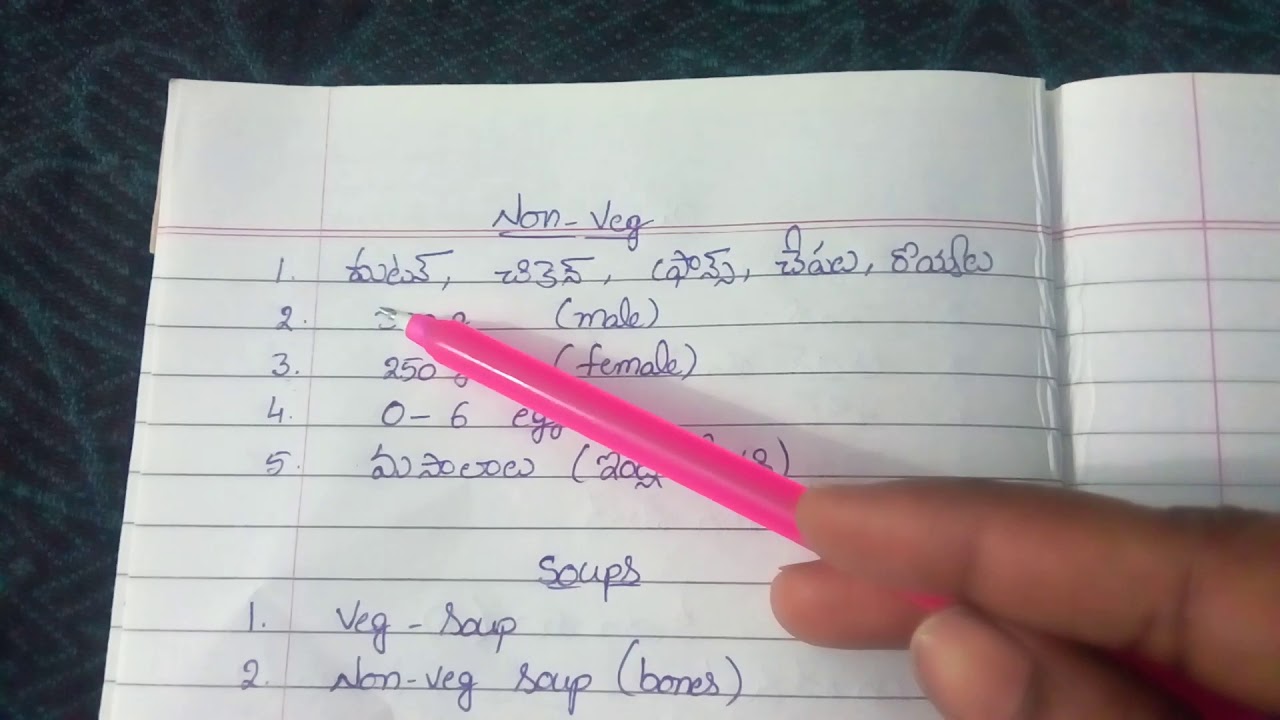 Non-Veg
1. మటన్, చికెన్, ప్రాన్స్, చేపలు, రొయ్యలు
2. (male)
3. 250 (female)
4. 0-6
5. మసాలాలు
Soups
1. Veg-Soup
2. Non-veg Soup (bones)